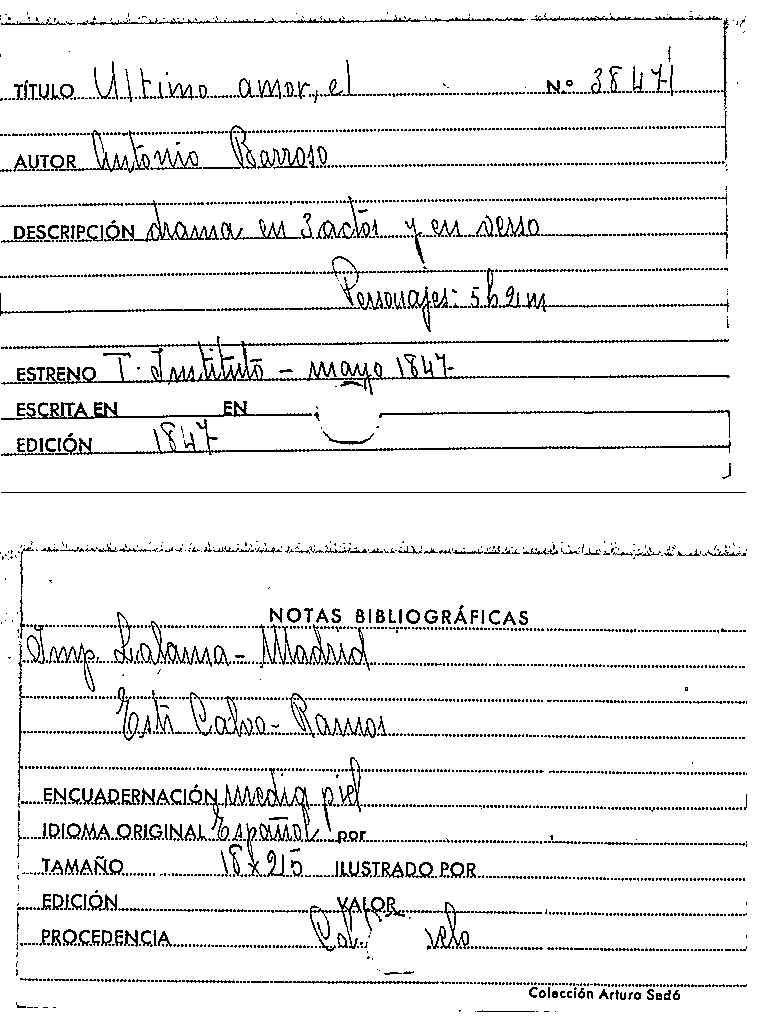 TÍTULO Ultimo amor, el Nº 38471
AUTOR Antonio Barroso
DESCRIPCIÓN drama en 3 actos y en verso
Personajes: 5h 2m
ESTRENO T. Instituto - mayo 1847
ESCRITA EN EN
EDICIÓN 1847
NOTAS BIBLIOGRÁFICAS
Imp Lalama - Madrid
Calvo - Ramos
ENCUADERNACIÓN media piel
IDIOMA ORIGINAL Español por
TAMAÑO 18x215 ILUSTRADO POR
EDICIÓN VALOR
PROCEDENCIA
Colección Arturo Sedó